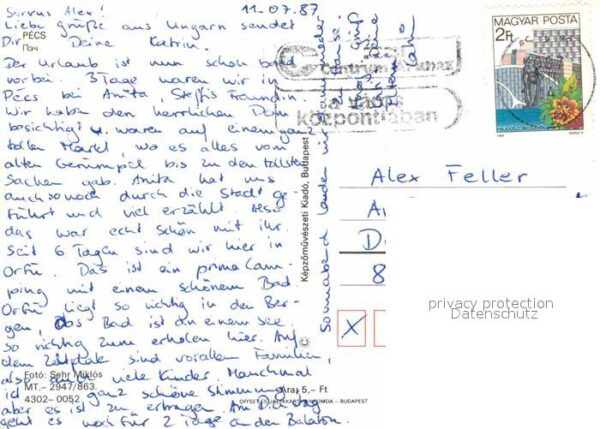 Servus Alex! 11.07.87
Liebe Grüße aus Ungarn sendet
Dir Deine Katrin.
PÉCS
Пэч
Der Urlaub ist nun schon bald
vorbei. 3 Tage waren wir in
Pécs bei Anita, Steffis Freundin.
Wir haben den herrlichen Dom
besichtigt u. waren auf einem ganz
tollen Markt, wo es alles vom
alten Gerümpel bis zu den tollsten
Sachen gab. Anita hat uns
auch noch durch die Stadt ge-
führt und viel erzählt. Also
das war echt schön mit ihr.
Seit 6 Tagen sind wir hier in
Orfü. Das ist ein prima Cam-
ping mit einem schönem Bad
Orfü liegt so richtig in den Ber-
gen, das Bad ist an einem See.
so richtig zum erholen hier. Auf
dem Zeltplatz sind vorallem Familien,
also auch viele Kinder. Manchmal
ist ganz schöne Stimmung
aber es ist zu ertragen. Am Dienstag
geht es noch für 2 Tage an den Balaton.
Sonnabend landen wir
Foto: Sehr Miklós
MT.– 2947/863.
4302– 0052
Ára: 5,– Ft
OFFSET ÉS JÁTÉKKÁRTYANYOMDA - BUDAPEST
© Képzőművészeti Kiadó, Budapest
centrum áruház
a város
központjában
MAGYAR POSTA
2Ft
Alex Feller
A
D
8
X
privacy protection
Datenschutz